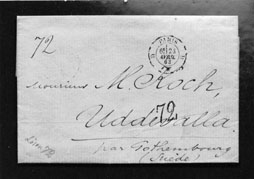 72
PARIS
Monsieur
M. Koch,
Uddevalla.
72
par Gothembourg
(Suède)